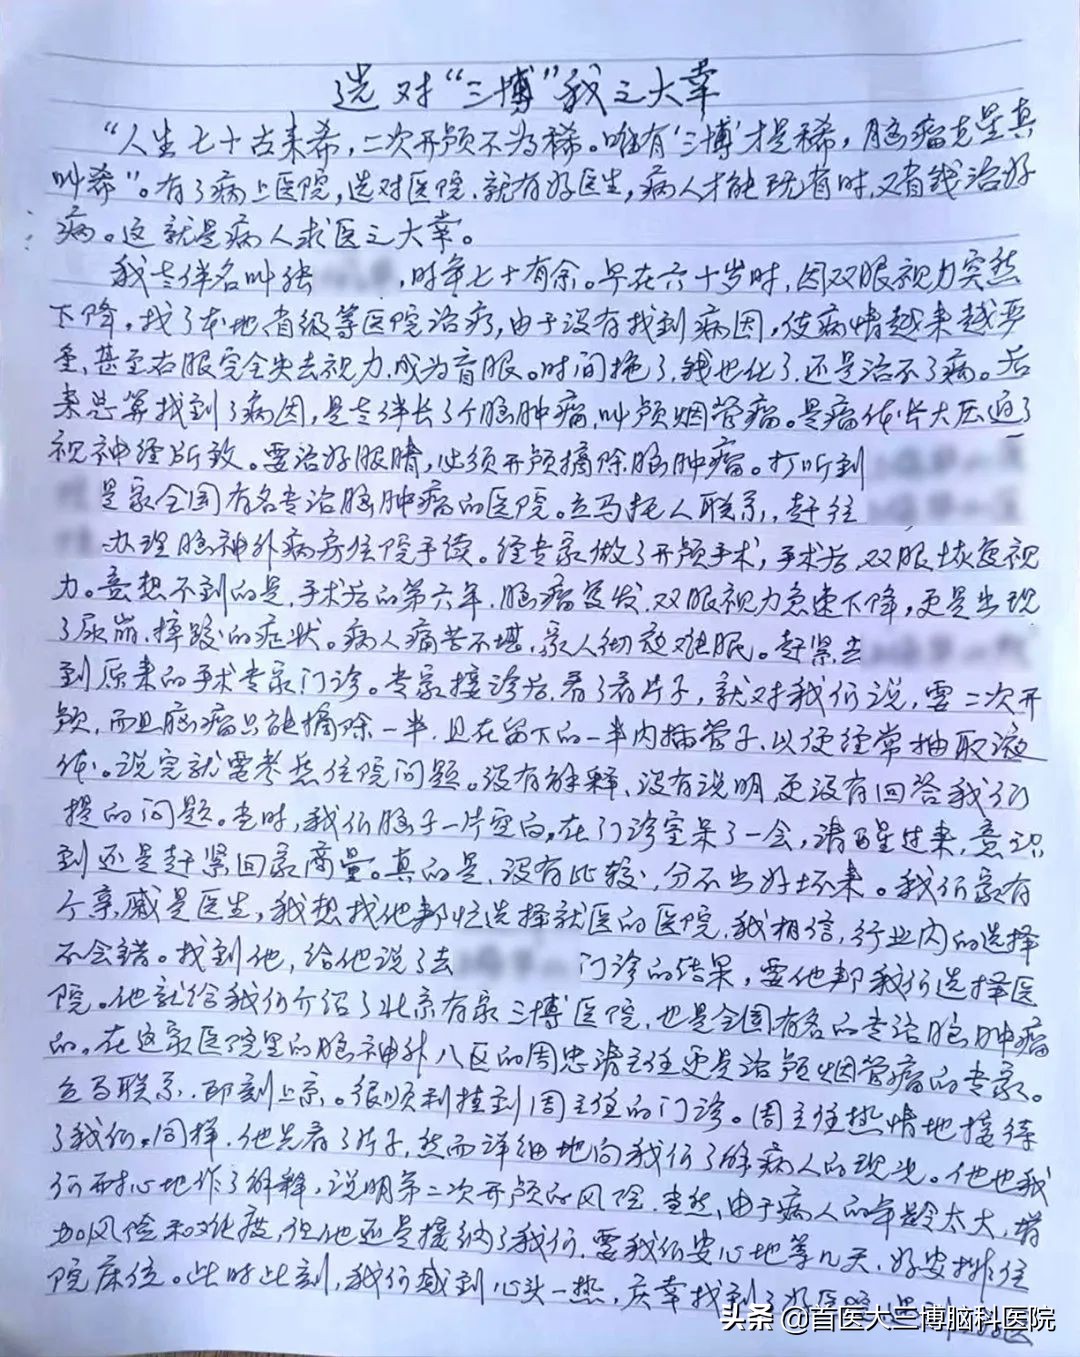 选对“三博”我之大幸
“人生七十古来希，二次开颅不为稀。唯有‘三博’才是稀，脑瘤克星真
叫希”。有了病上医院，选对医院.就有好医生，病人才能既省时，又省钱治好
病。这就是病人求医之大幸。
我老伴名叫张 ，时年七十有余。早在六十岁时，因双眼视力突然
下降，找了本地省级等医院治疗，由于没有找到病因，使病情越来越严
重，甚至右眼完全失去视力，成为盲眼。时间拖了，钱也化了.还是治不了病。后
来总算找到了病因，是老伴长了个脑肿瘤，叫颅烟管瘤。是瘤体片大压迫了
视神经所致。要治好眼睛，必须开颅摘除脑肿瘤。打听到
是家全国有名专治脑肿瘤的医院。立马托人联系，赶往
办理脑神外病房住院手续。经专家做了开颅手术，手术后，双眼恢复视
力。意想不到的是，手术后的第六年，脑瘤复发，双眼视力急速下降，更是出现
了尿崩、摔跤的症状。病人痛苦不堪，家人彻夜难眠。赶紧去
到原来的手术专家门诊。专家接诊后，看了看片子，就对我们说，要二次开
颅，而且脑瘤只能摘除一半，且在留下的一半内插管子，以便经常抽取液
体。说完就要考虑住院问题。没有解释、没有说明，更没有回答我们
提的问题。当时，我们脑子一片空白，在门诊室呆了一会，清醒过来，意识
到还是赶紧回家商量。真的是，没有比较，分不出好坏来。我们家有
个亲戚是医生，我想找他帮忙选择就医的医院，我相信，行业内的选择
不会错。找到他，给他说了去 门诊的结果，要他帮我们选择医
院。他就给我们介绍了北京有家三博医院，也是全国有名的专治脑肿瘤
的。在这家医院里的脑神外八区的周忠清主任更是治颅烟管瘤的专家。
立马联系，即刻上京。很顺利挂到周主任的门诊。周主任热情地接待
了我们。同样，他先看了片子，然而详细地向我们了解病人的现况。他也我
们耐心地作了解释，说明第二次开颅的风险，当然，由于病人的年龄太大，增
加风险和难度，但他还是接纳了我们，要我们安心地等几天，好安排住
院床位。此时此刻，我们感到心头一热，庆幸找到了好医院
头条 @首医大三博脑科医院